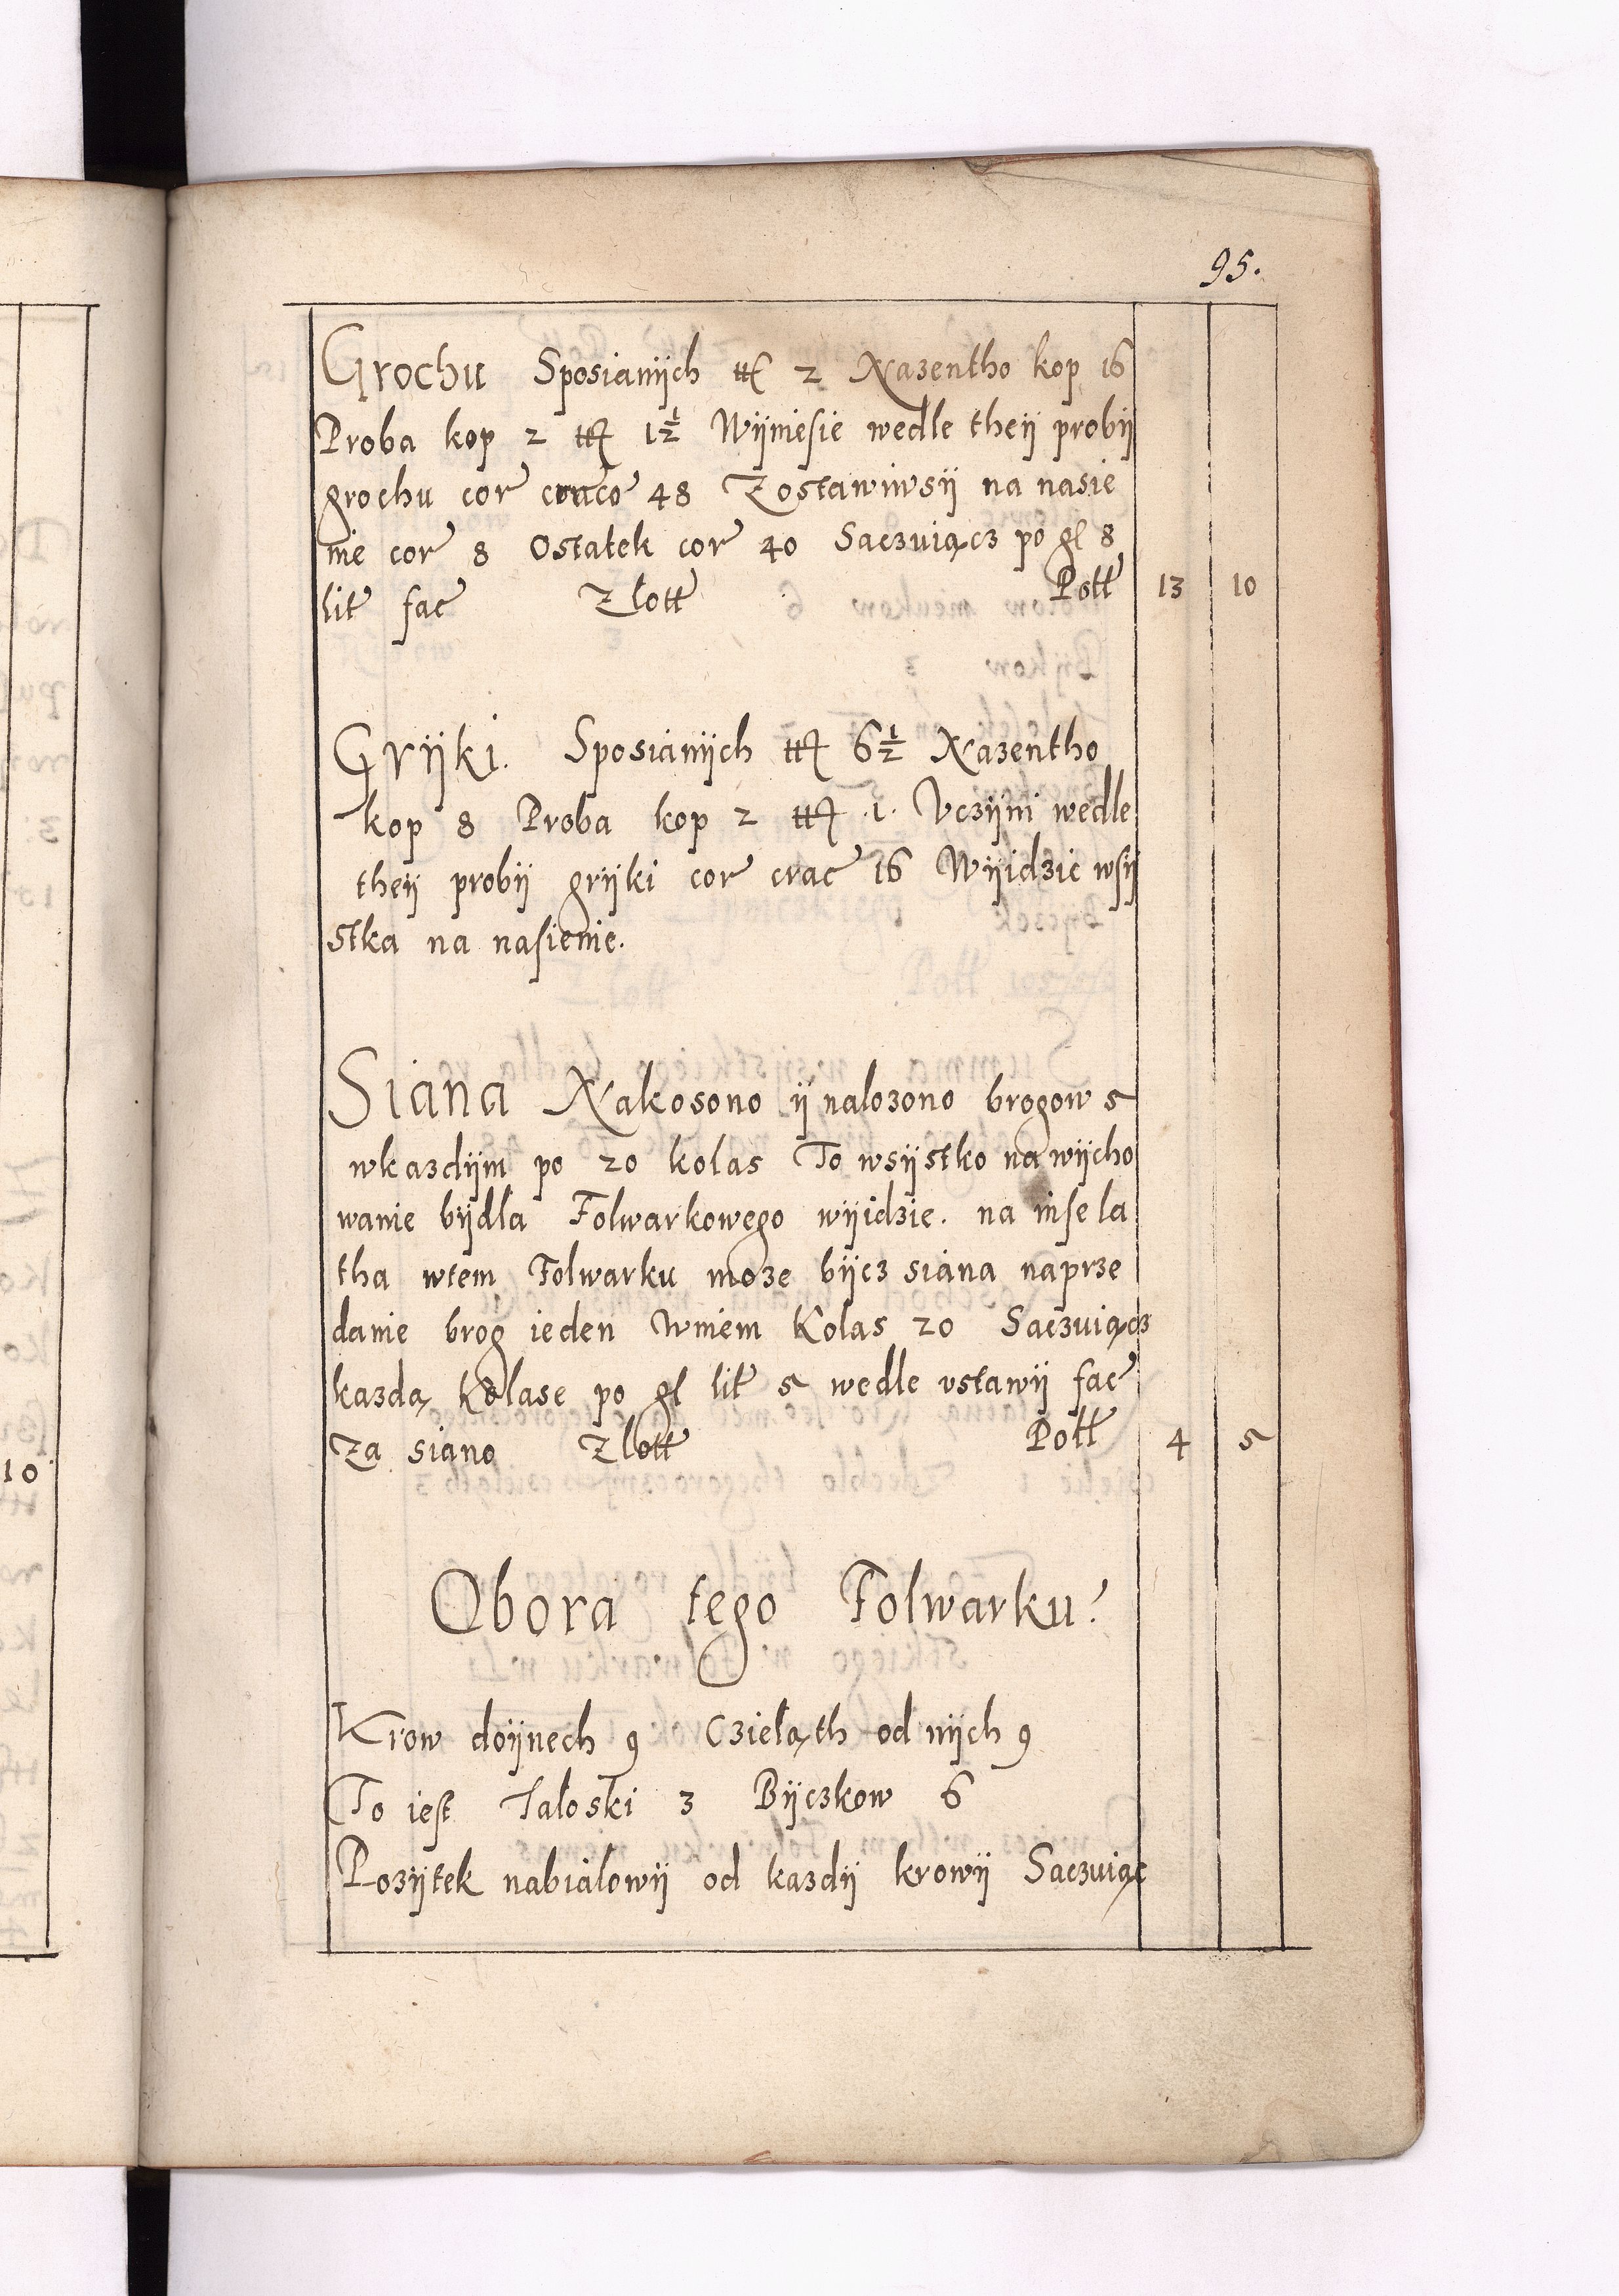 95.
Grochu Sposianÿch 2 Nazentho kop 16
Proba kop 2 1½ Wÿniesie wedle theÿ probÿ
grochu cor craco 48 Zostawiwsÿ na nasie
nie cor 8 Ostatek cor 40 Saczuiącz po gl 8
lit fac Zlott Pott 13 10
Grÿki. Sposianÿch 6½ Nazentho
kop 8 Proba kop 2 1. Vczÿni wedle
theÿ probÿ grÿki cor crac 16 Wÿidzie wsÿ
stka na nasienie.
Siana Nakosono ÿ nalozono brogow 5
wkazdÿm po 20 kolas To wsÿstko na wÿcho
wanie bÿdla Folwarkowego wÿidzie. na inse la
tha wtem Folwarku moze bÿcz siana naprze
danie brog ieden Wniem Kolas 20 Saczuiącz
kazdą Kolase po gl lit 5 wedle vstawÿ fac
Za siano Zlott Pott 4 5
Obora tego Folwarku
Krow doÿnech 9 Czieląth od nÿch 9
To iest Jaloski 3 Bÿczkow 6
Pozÿtek nabialowÿ od kazdÿ krowÿ Saczuiąc
10